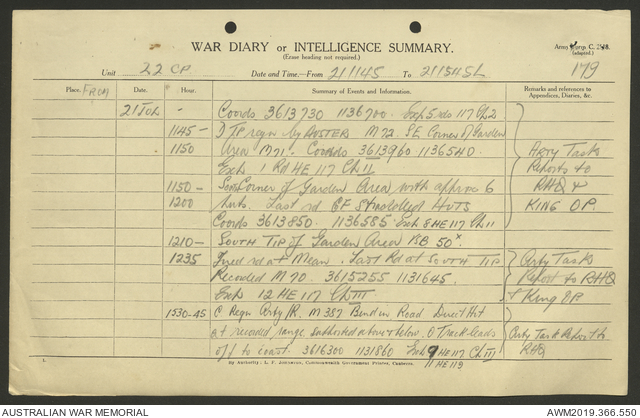 WAR DIARY or INTELLIGENCE SUMMARY.
(Erase heading not required.)
Army Form C. 2118.
(adapted.)
179
Unit 22 CP Date and Time—From 211145 To 211545L
Place. FROM Date. Hour. Summary of Events and Information. Remarks and references to Appendices, Diaries, &c.
21 Jul - Coords 3613730 1136700. Exp 5 rds 117 Ch 2
1145 - D Tp regn by M72. S.E. Corner of Garden
1150 Area M71. Coords 3613960 1136540. Arty Task
Exp 1 Rd HE 117 Ch II Reports to
1150 - Sou Corner of Garden Area with approx 6 RHQ &
1200 huts. Last rd GF Straddled HUTS KING OP.
Coords 3613850 1136585 Exp 8 HE 117 Ch II
1210 - SOUTH TIP of Garden Area RB 50x.
1235 Fired rd at Mean. Last Rd at SOUTH TIP Arty Task
Recorded M70. 3615255 1131645. Report to RHQ
Exp 12 HE 117 Ch III + King OP
1530-45 C Regn Arty /R. M387 Bend in Road Direct Hit
at recorded range Subtracted above & below. O Track leads Arty Task Report to
off to coast. 3616300 1131860 Exp 9 HE 117 Ch III RHQ
11 HE 119
1.
By Authority: L. F. Johnston, Commonwealth Government Printer, Canberra.
AUSTRALIAN WAR MEMORIAL
AWM2019.366.550